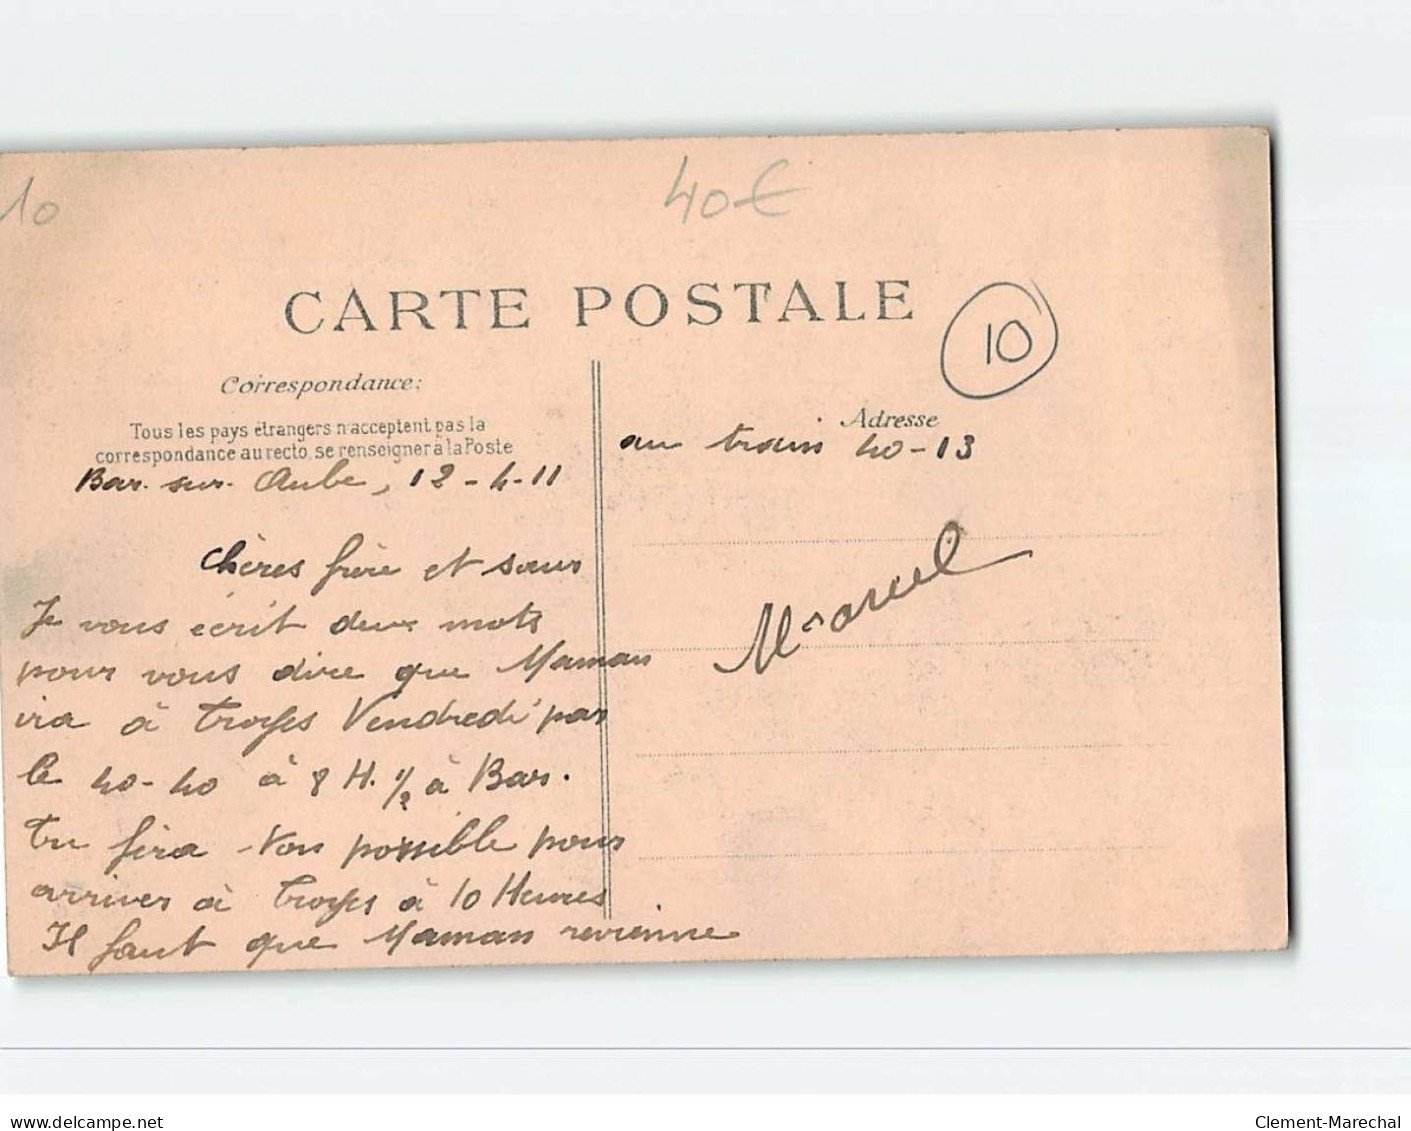 10
40€
CARTE POSTALE
10
Correspondance:
Tous les pays étrangers n'acceptent pas la
correspondance au recto, se renseigner à la Poste
Bar. sur. Aube, 12-4-11
Chères frère et sœur
Je vous écrit deux mots
pour vous dire que Maman
ira à Troyes Vendredi par
le 40-40 à 8 H. 1/2 à Bar.
Tu fera ton possible pour
arriver à Troyes à 10 Heures
Il faut que Maman revienne
Adresse
au train 40-13
Marcel
www.delcampe.net
Clement-Marechal